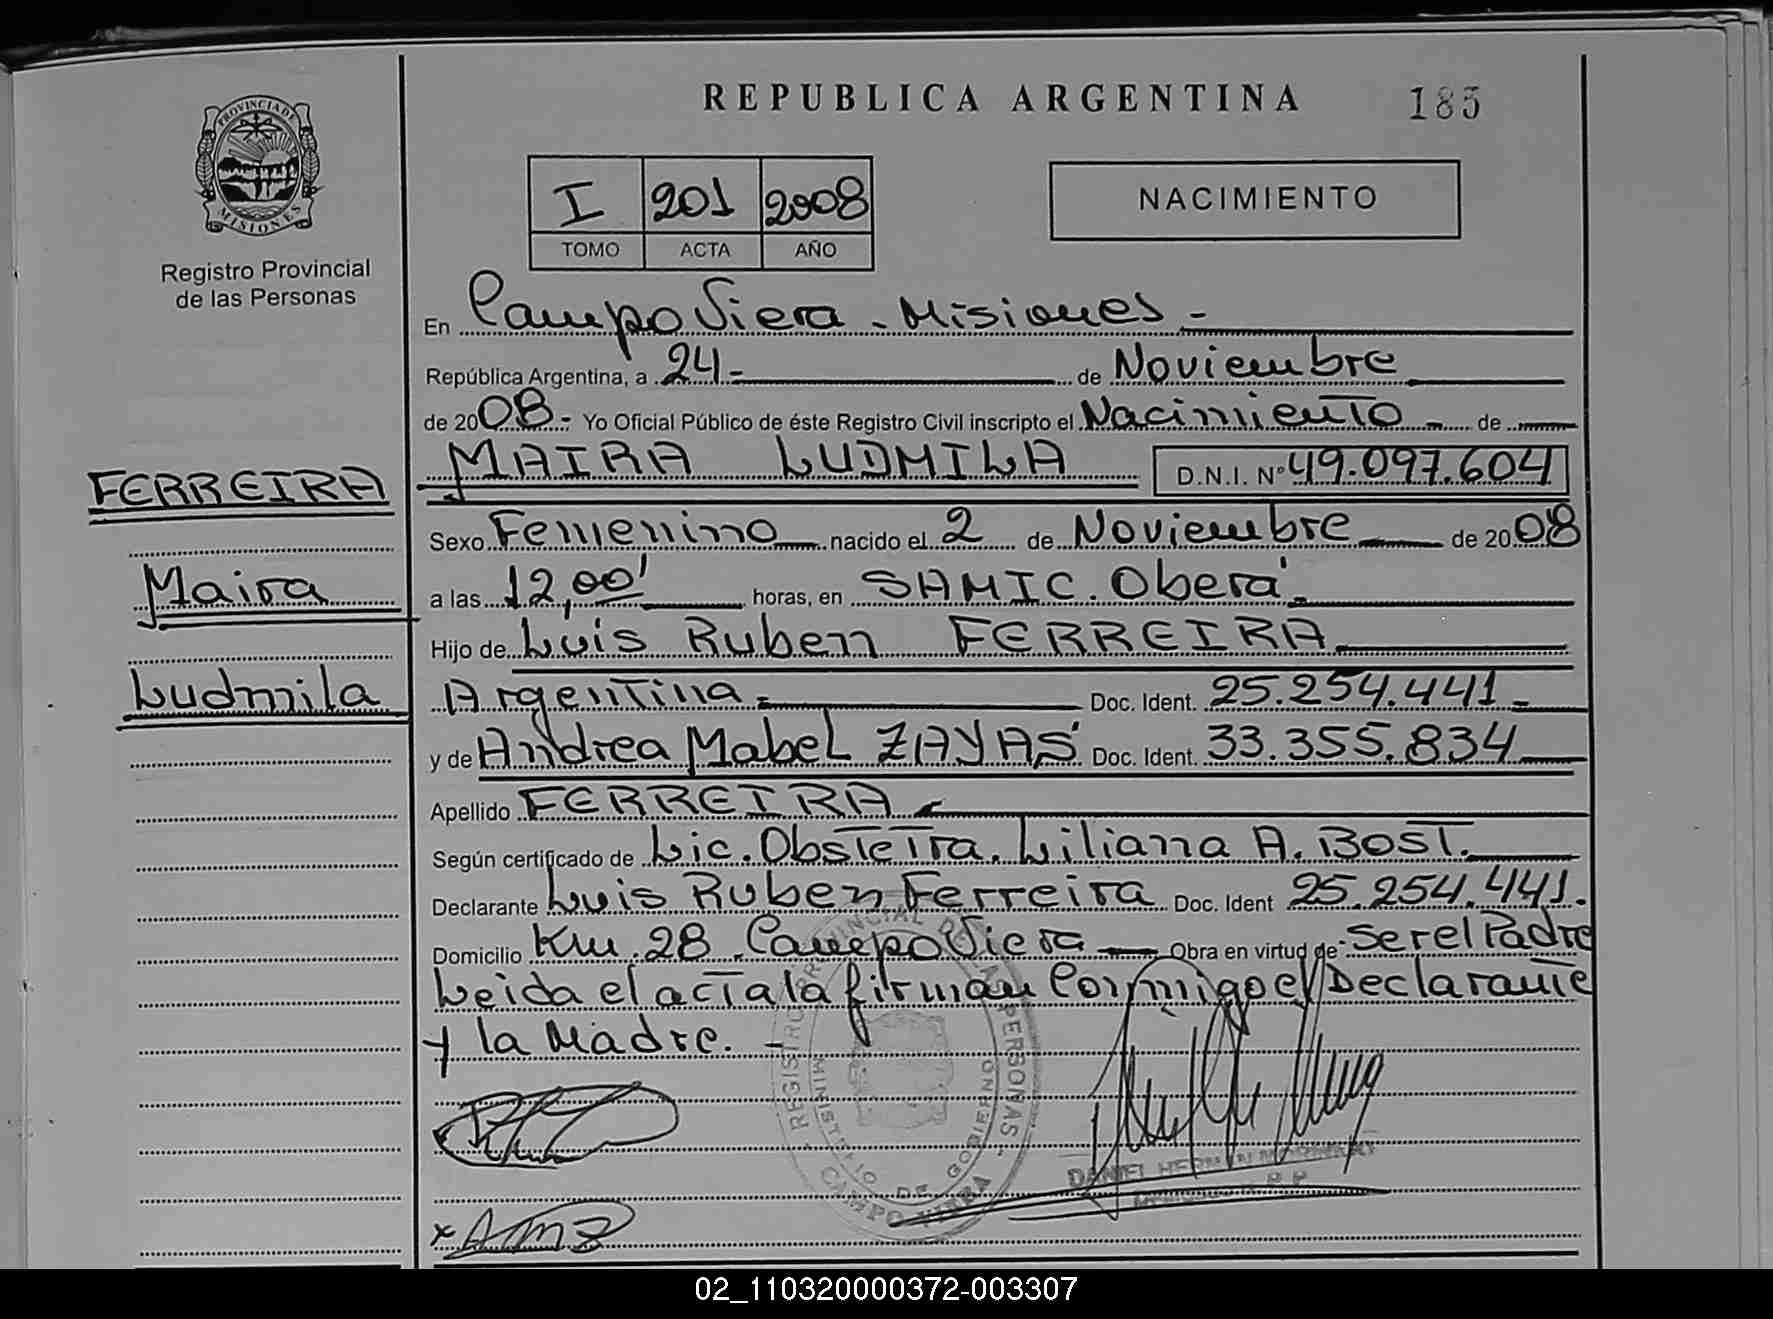 REPUBLICA ARGENTINA
185
PROVINCIA DE
MISIONES
Registro Provincial
de las Personas
I 201 2008
TOMO ACTA AÑO
NACIMIENTO
En Campo Viera - Misiones -
República Argentina, a 24- de Noviembre
de 2008.- Yo Oficial Público de éste Registro Civil inscripto el Nacimiento - de
MAIRA LUDMILA D.N.I. Nº 49.097.604
FERREIRA
Sexo Femenino nacido el 2 de Noviembre de 2008
Maira
a las 12,00' horas, en SAMIC. Oberá.
Hijo de Luis Ruben FERREIRA
Ludmila
Argentina - Doc. Ident. 25.254.441-
y de Andrea Mabel ZAYAS Doc. Ident. 33.355.834
Apellido FERREIRA
Según certificado de Lic. Obstetra. Liliana A. BOST.
Declarante Luis Ruben Ferreira Doc. Ident 25.254.441.
Domicilio Km. 28. Campo Viera Obra en virtud de ser el Padre
Leida el acta la firman conmigo el Declarante
y la Madre. -
REGISTRO PROVINCIAL DE LAS PERSONAS
MINISTERIO DE GOBIERNO
CAMPO VIERA
x AMZ
DANIEL
02_110320000372-003307